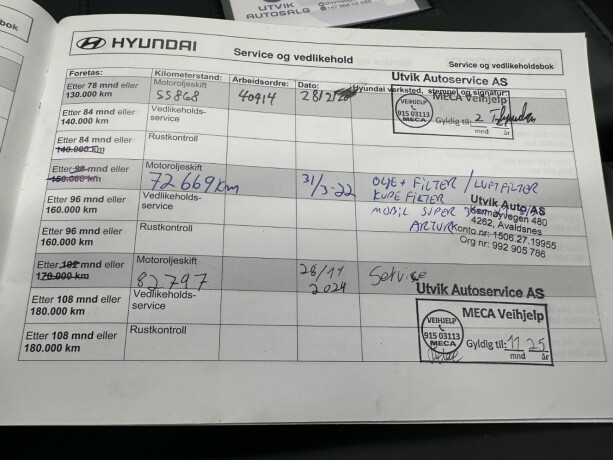 UTVIK
AUTOSALG
bok
HYUNDAI
Service og vedlikehold
Service og vedlikeholdsbok
Foretas:
Kilometerstand:
Arbeidsordre:
Dato:
Hyundai verksted, stempel og signatur:
Etter 78 mnd eller
130.000 km
Motoroljeskift
55868
40914
28/2
Utvik Autoservice AS
VEIHJELP
915 03113
MECA
MECA Veihjelp
Gyldig til: 2
mnd
år
Etter 84 mnd eller
140.000 km
Vedlikeholds-
service
Etter 84 mnd eller
140.000 km
Rustkontroll
Etter 90 mnd eller
150.000 km
Motoroljeskift
72669km
31/3-22
OLJE + FILTER / LUFTFILTER
KUPE FILTER
MOBIL SUPER
ARTUR
Utvik Auto AS
Karmøyvegen 480
4262, Avaldsnes
Konto nr: 1506.27.19955
Org nr: 992 905 786
Etter 96 mnd eller
160.000 km
Vedlikeholds-
service
Etter 96 mnd eller
160.000 km
Rustkontroll
Etter 102 mnd eller
170.000 km
Motoroljeskift
82797
28/11
2024
Service
Utvik Autoservice AS
VEIHJELP
915 03113
MECA
MECA Veihjelp
Gyldig til: 11 25
mnd
år
Etter 108 mnd eller
180.000 km
Vedlikeholds-
service
Etter 108 mnd eller
180.000 km
Rustkontroll